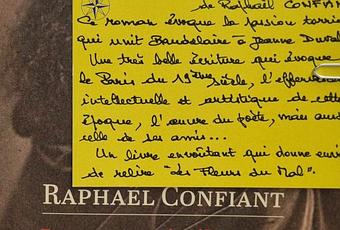 de Raphaël CONFIAN
Ce roman évoque la passion torri
qui unit Baudelaire à Jeanne Duval
Une très belle écriture qui évoque
le Paris du 19ème siècle, l'efferves
intellectuelle et artistique de cette
époque, l'œuvre du poète, mais aus
celle de ses amis...
Un livre envoûtant qui donne envi
de relire "Les Fleurs du Mal".
RAPHAËL CONFIANT